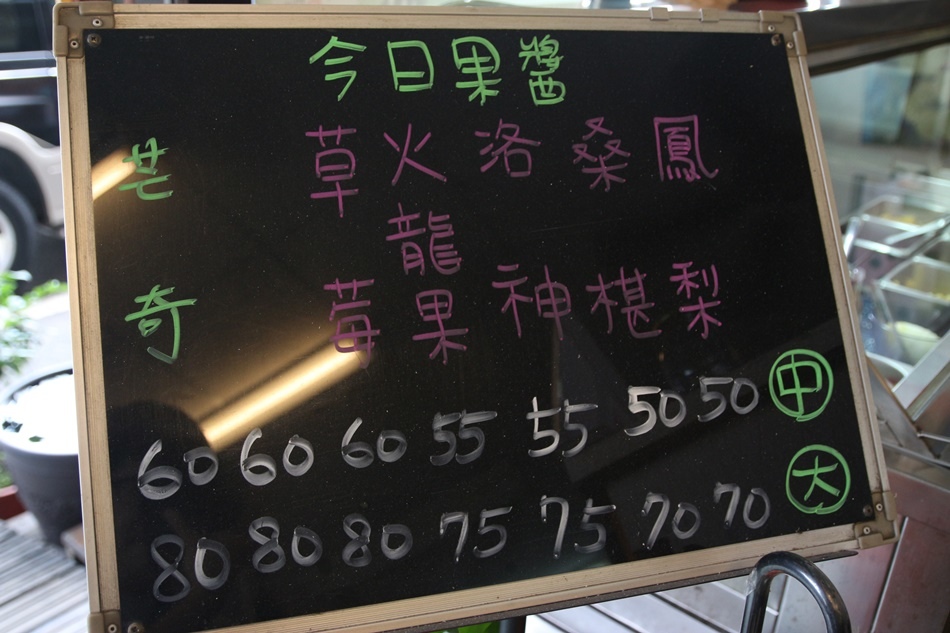 今日果醬
鳳梨
桑椹
洛神
火龍果
草莓
芒奇
60 60 60 55 55 50 50 中
80 80 80 75 75 70 70 大